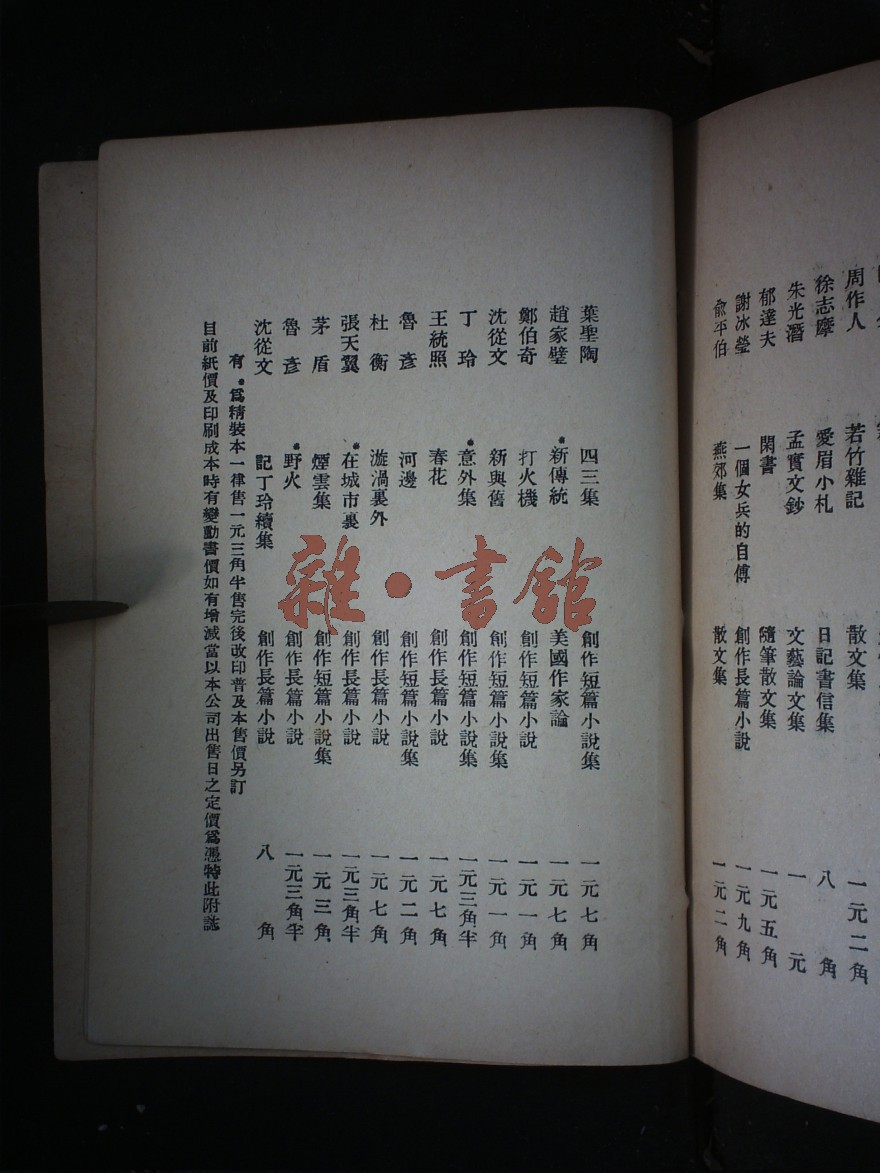 周作人 若竹雜記 散文集 一元二角
徐志摩 愛眉小札 日記書信集 八角
朱光潛 孟實文鈔 文藝論文集 一元
郁達夫 閑書 隨筆散文集 一元五角
謝冰瑩 一個女兵的自傳 創作長篇小說 一元九角
俞平伯 燕郊集 散文集 一元二角
葉聖陶 四三集 創作短篇小說集 一元七角
趙家璧 •新傳統 美國作家論 一元七角
鄭伯奇 打火機 創作短篇小說 一元一角
沈從文 新與舊 創作短篇小說集 一元一角
丁玲 •意外集 創作短篇小說集 一元三角半
王統照 春花 創作長篇小說 一元七角
魯彥 河邊 創作短篇小說集 一元二角
杜衡 漩渦裏外 創作長篇小說 一元七角
張天翼 •在城市裏 創作長篇小說 一元三角半
茅盾 煙雲集 創作短篇小說集 一元三角
魯彥 •野火 創作長篇小說 一元三角半
沈從文 記丁玲續集 創作長篇小說 八角
有•爲精裝本一律售一元三角半售完後改印普及本售價另訂
目前紙價及印刷成本時有變動書價如有增減當以本公司出售日之定價爲憑特此附誌
雜•書館